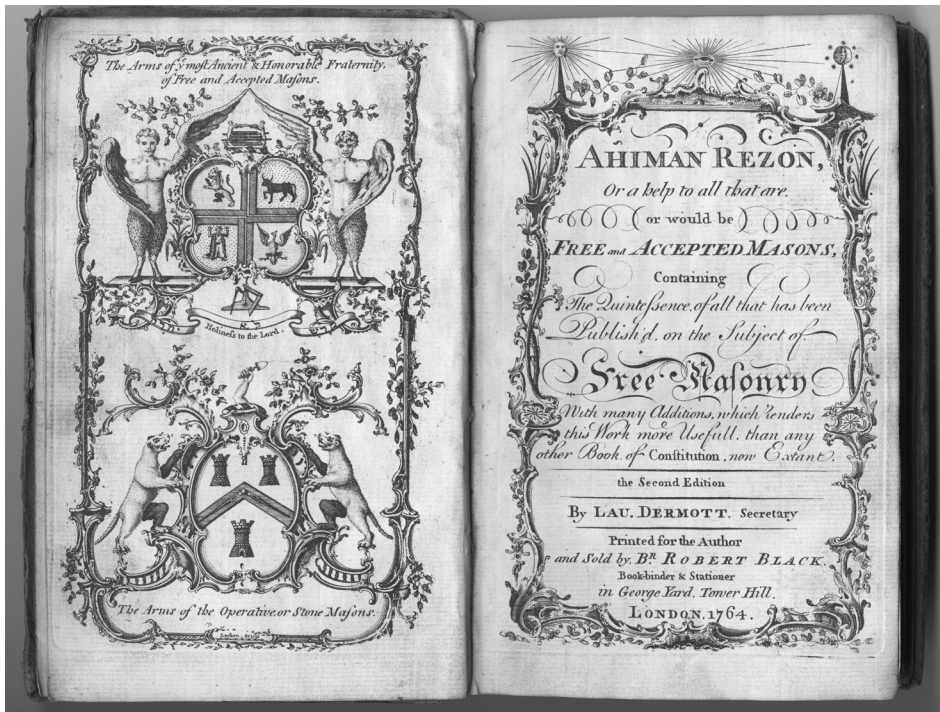 The Arms of yͤ most Ancient & Honorable Fraternity,
of Free and Accepted Masons.
Holiness to the Lord.
The Arms of the Operative, or Stone Masons.
AHIMAN REZON,
Or a help to all that are,
or would be
FREE and ACCEPTED MASONS,
Containing
The Quintessence, of all that has been
Publish'd, on the Subject of
Free Masonry
With many Additions, which renders
this Work more Usefull, than any
other Book, of Constitution, now Extant.
the Second Edition
By LAU. DERMOTT. Secretary
Printed for the Author
and Sold by, Bᴿ ROBERT BLACK.
Book-binder & Stationer
in George Yard, Tower Hill.
LONDON, 1764.